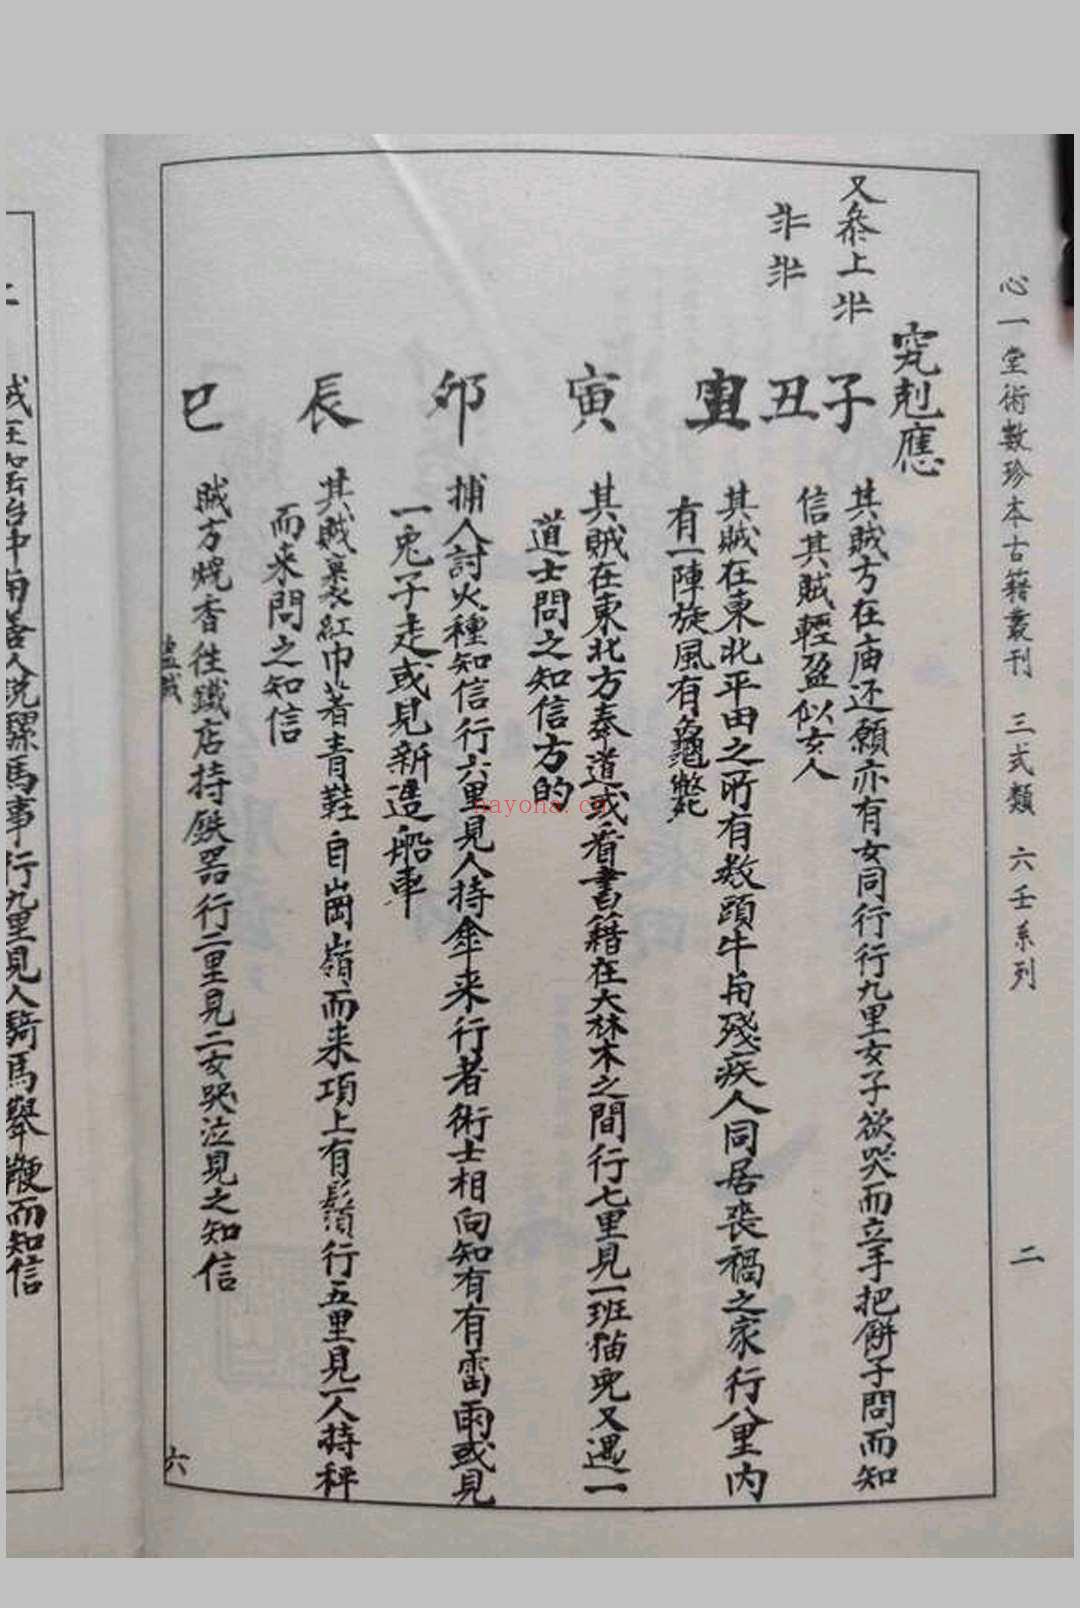 心一堂術數珍本古籍叢刊 三式類 六壬系列
二
究剋應
又叅上
子 其賊方在庙还願亦有女同行行九里女子欲哭而立手把餅子問而知
信其賊輕盈似女人
丑 其賊在東北平田之所有数頭牛角殘疾人同居丧禍之家行八里内
有一陣旋風有龜鱉
寅 其賊在東北方奉道或看書籍在大林木之間行七里見一班猫兜又遇一
道士問之知信方的
卯 捕人討火種知信行六里見人持傘来行者術士相向知有有雷雨或見
一兎子走或見新造船車
辰 其賊裹紅巾著青鞋自崗嶺而来項上有鬚行五里見一人持秤
而来問之知信
巳 賊方燒香徃鐵店持鉄器行二里見二女哭泣見之知信
六
騾馬事行九里見人騎馬舉鞭而知信
nayona.cn